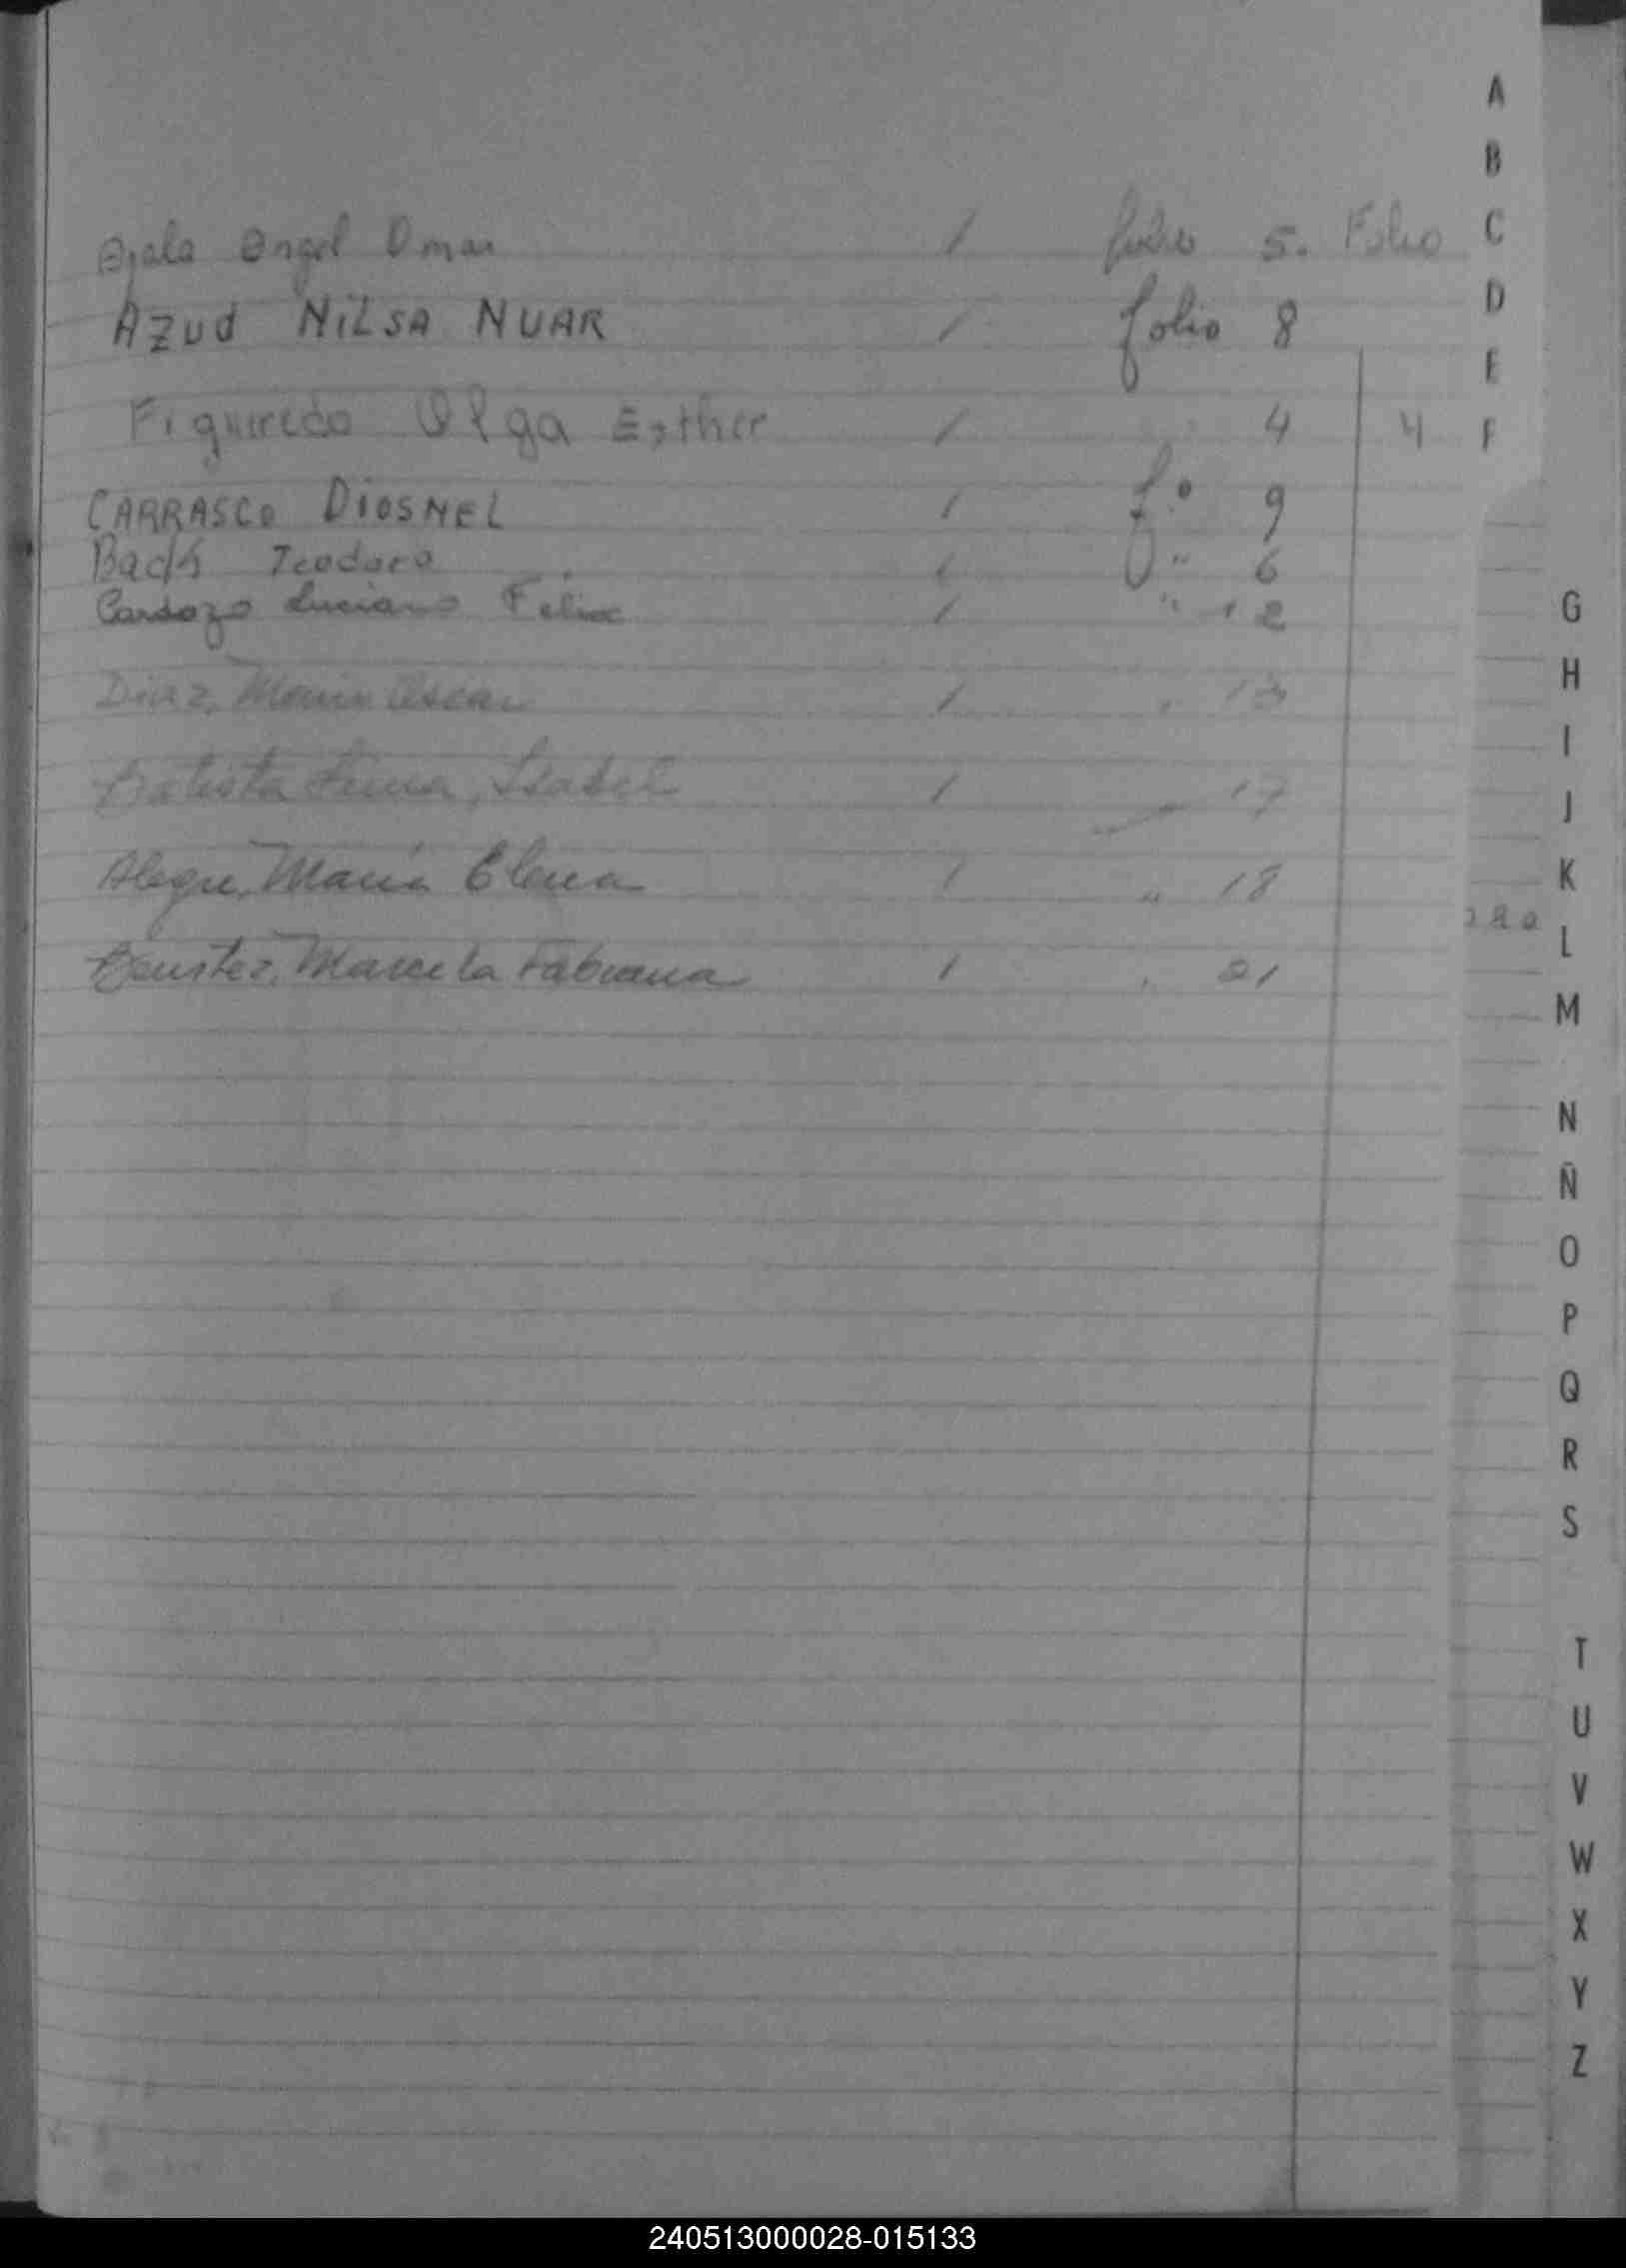 Ajala Angel Omar / folio 5. Folio
AZUd NILSA NUAR / folio 8
Figueredo Olga Esther / 4 4
CARRASCO DIOSNEL / f.º 9
Badi Teodoro / " 6
Cardozo Luciano Felix / " 12
Diaz, Mario Oscar / " 13
Batista Isabel / 17
Alegre, María Elena / " 18
Benitez, Marcela Fabiana / " 21
A
B
C
D
E
F
G
H
I
J
K
L
M
N
Ñ
O
P
Q
R
S
T
U
V
W
X
Y
Z
240513000028-015133